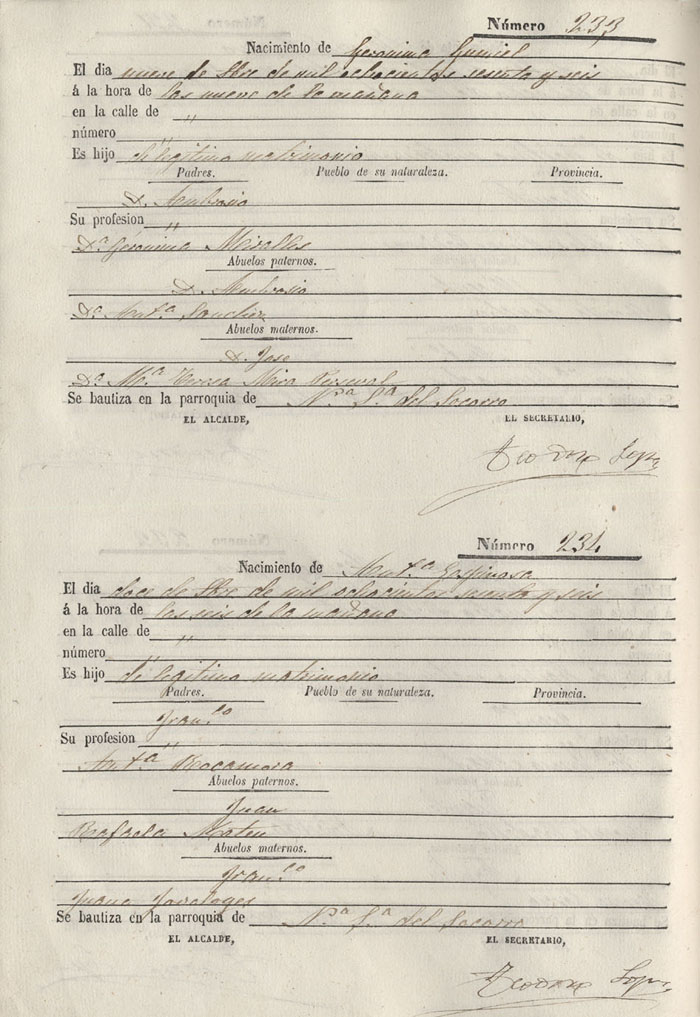 Número 233
Nacimiento de Geronimo Gumiel
El dia nueve de Sbre de mil ochocientos sesenta y seis
á la hora de las nueve de la mañana
en la calle de "
número "
Es hijo de legitimo matrimonio
Padres. Pueblo de su naturaleza. Provincia.
D. Ambrosio
Su profesion "
Dª Geronima Miralles
Abuelos paternos.
D. Ambrosio
Dª Antª Sanchez
Abuelos maternos.
D. Jose
Dª Mª Teresa Mira Perseval
Se bautiza en la parroquia de Nra Sª del Socorro
EL ALCALDE, EL SECRETARIO,
Teodoro Lopez
Número 234
Nacimiento de Antª Espinosa
El dia doce de Sbre de mil ochocientos sesenta y seis
á la hora de las seis de la mañana
en la calle de "
número "
Es hijo de legitimo matrimonio
Padres. Pueblo de su naturaleza. Provincia.
Franco
Su profesion "
Antª Rocamora
Abuelos paternos.
Juan
Rafaela
Abuelos maternos.
Franco
Juana
Se bautiza en la parroquia de Nra Sª del Socorro
EL ALCALDE, EL SECRETARIO,
Teodoro Lopez